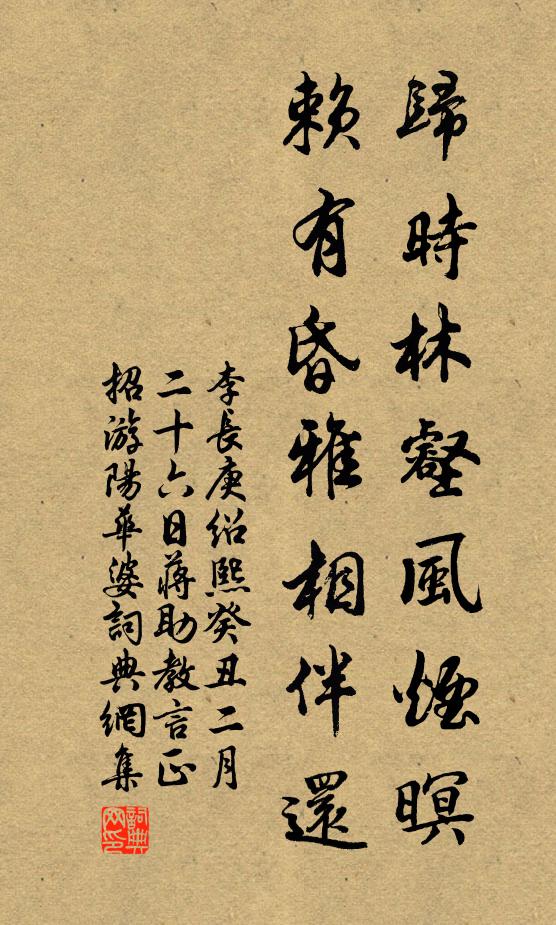 歸時林壑風煙暝
賴有昏雅相伴還
李長庚紹熙癸丑二月
二十六日蔣助教言正
招游陽華婆詞典網集
詞典
网印